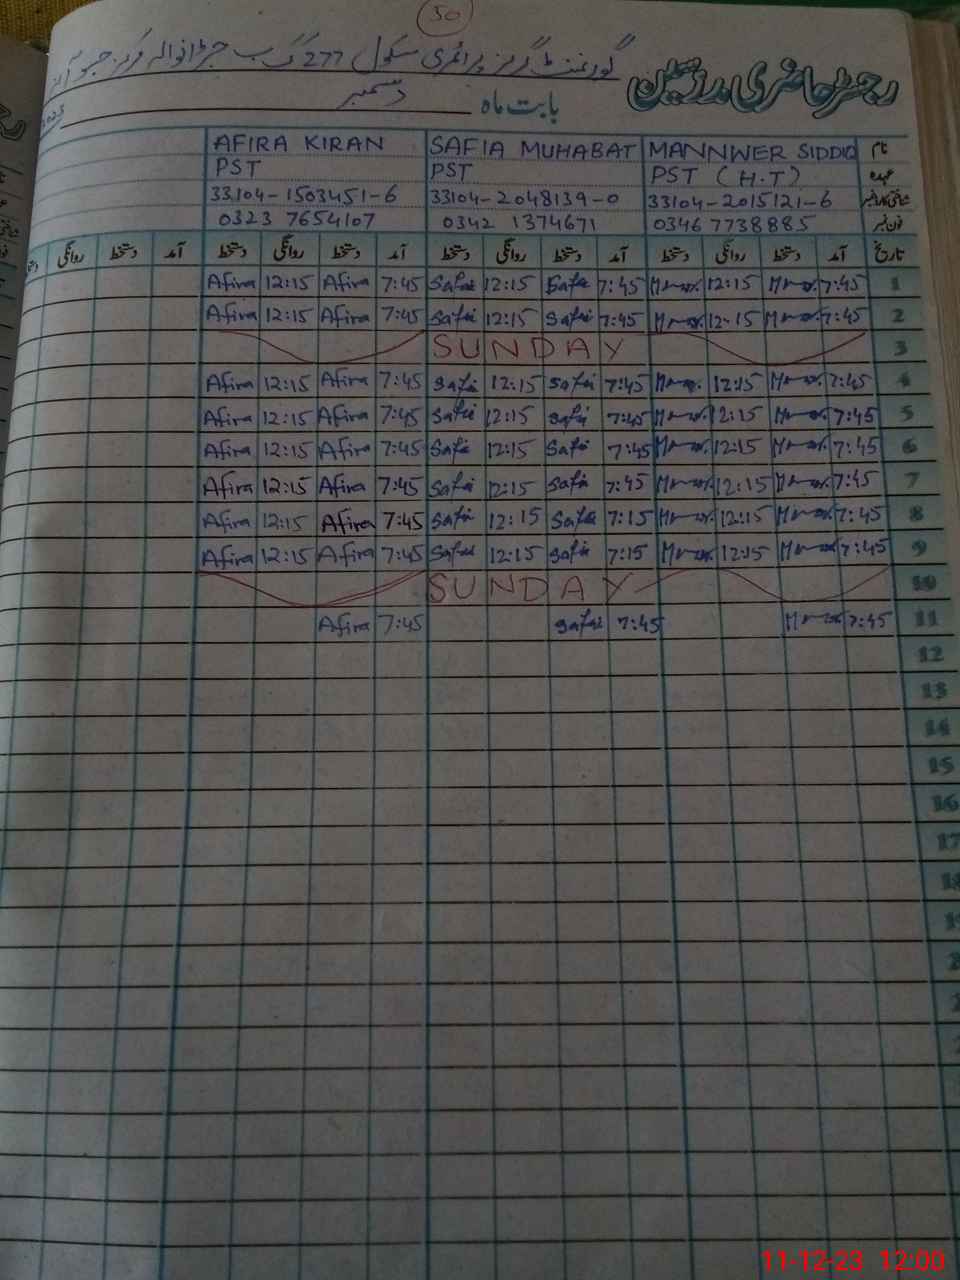 50
گورنمنٹ گرلز پرائمری سکول 277 گ ب جڑانوالہ مرکز
رجسٹر حاضری مدرسین
بابت ماہ دسمبر 2023
نام MANNWER SIDDIQ SAFIA MUHABAT AFIRA KIRAN
عہدہ PST (H.T) PST PST
شناختی کارڈ نمبر 33104-2015121-6 33104-2048139-0 33104-1503451-6
فون نمبر 0346 7738885 0342 1374671 0323 7654107
تاریخ آمد دستخط روانگی دستخط آمد دستخط روانگی دستخط آمد دستخط روانگی دستخط آمد دستخط روانگی دستخط
Afira 12:15 Afira 7:45 Safia 12:15 Safia 7:45 12:15 7:45 1
Afira 12:15 Afira 7:45 Safia 12:15 Safia 7:45 12:15 7:45 2
SUNDAY 3
Afira 12:15 Afira 7:45 Safia 12:15 Safia 7:45 12:15 7:45 4
Afira 12:15 Afira 7:45 Safia 12:15 Safia 7:45 12:15 7:45 5
Afira 12:15 Afira 7:45 Safia 12:15 Safia 7:45 12:15 7:45 6
Afira 12:15 Afira 7:45 Safia 12:15 Safia 7:45 12:15 7:45 7
Afira 12:15 Afira 7:45 Safia 12:15 Safia 7:15 12:15 7:45 8
Afira 12:15 Afira 7:45 Safia 12:15 Safia 7:15 12:15 7:45 9
SUNDAY 10
Afira 7:45 Safia 7:45 7:45 11
12
13
14
15
16
17
18
11-12-23 12:00